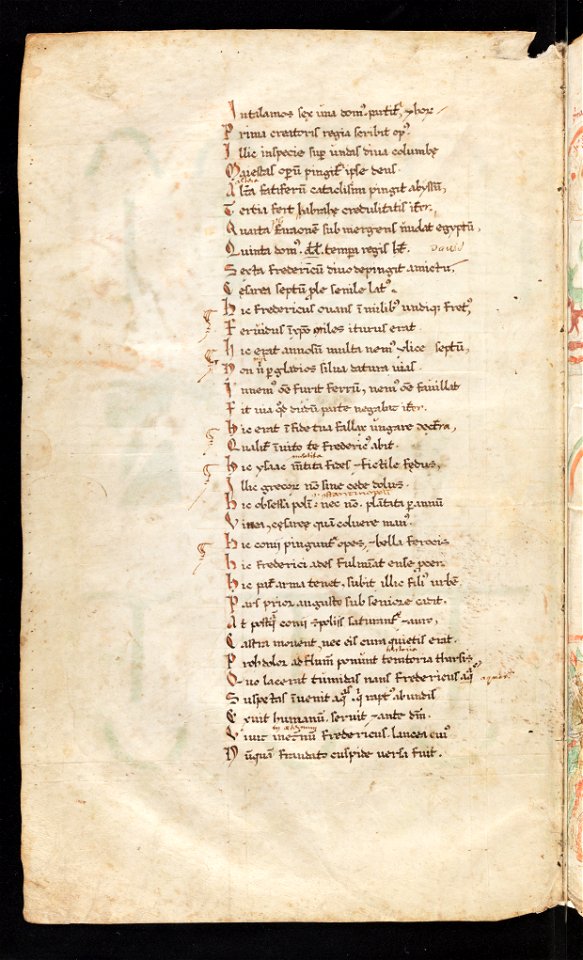 Intalamos sex una dom⁹ partit᷑ ⁊ hor
Prima creatoris regia scribit op⁹
Illic inspecie sup undas diva columbe
Maiestas operū pingit᷑ ipse deus
Altā fatiferū cataclismi pingit abyssū,
Tertia fert habrahe credulitatis it᷑,
Quarta faraonē sub mergens inūdat egyptū,
Quinta dom⁹ dd̄. tempa regis ht̄. david
Sexta fredericū divo depingit amictu,
Cesarea septū ple senile lat⁹.
Hic fredericus ovans ī milib⁹ undiq; fret⁹,
Fervidus ī xpō miles iturus erat
Hic erat annosū multa nem⁹ ilice septū,
Non n̄ p gladios silva datura vias
In nem⁹ oē furit ferrū, nem⁹ oē favillat
Fit via qē dudū parte negabit it᷑.
Hic erat ī fide tua fallax ungare dext᷑a,
Qualit᷑ īvito te frederic⁹ abit
Hic ysac m̄tita fides ⁊ fictile fedus,
Illic grecor nō sine cede dolus
Hic obsessa polī. nec nō. plātata p annū
Vinea, cesaree quā coluere man⁹.
Hic conii pingunt᷑ opes, ⁊ bella ferocis
Hic frederici acies fulmināt ense pocer.
Hic pat᷑ arma tenet. subit illic fili⁹ urbē
Pars prior augusto sub seniore cadit.
At postq̄ conii spoliis saturant᷑ ⁊ auro,
Castra movent, nec eis cum quietis erat.
Proh dolor ad flum̄ ponunt temtoria tharsis
Quo lacerit tumidas nans fredericus aq̄s
Suspectas īvenit aq̄s. q̄ rapt⁹ ab undis
Exuit humanū. servit ⁊ ante dm̄.
Vivit inet᷑nū fredericus. lancea cui⁹
Nūquā fraudato cuspide versa fuit.